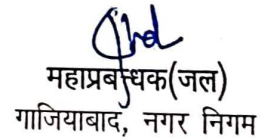 महाप्रबन्धक(जल)
गाजियाबाद, नगर निगम